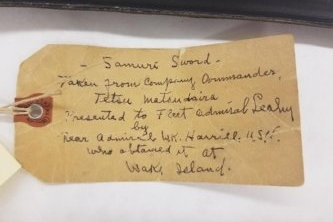 - Samuri Sword -
Taken from Company Commander,
Tetsu Matsudaira
Presented to Fleet Admiral Leahy
by
Rear Admiral W.K. Harrill. U.S.N.
who obtained it at
Wake Island.